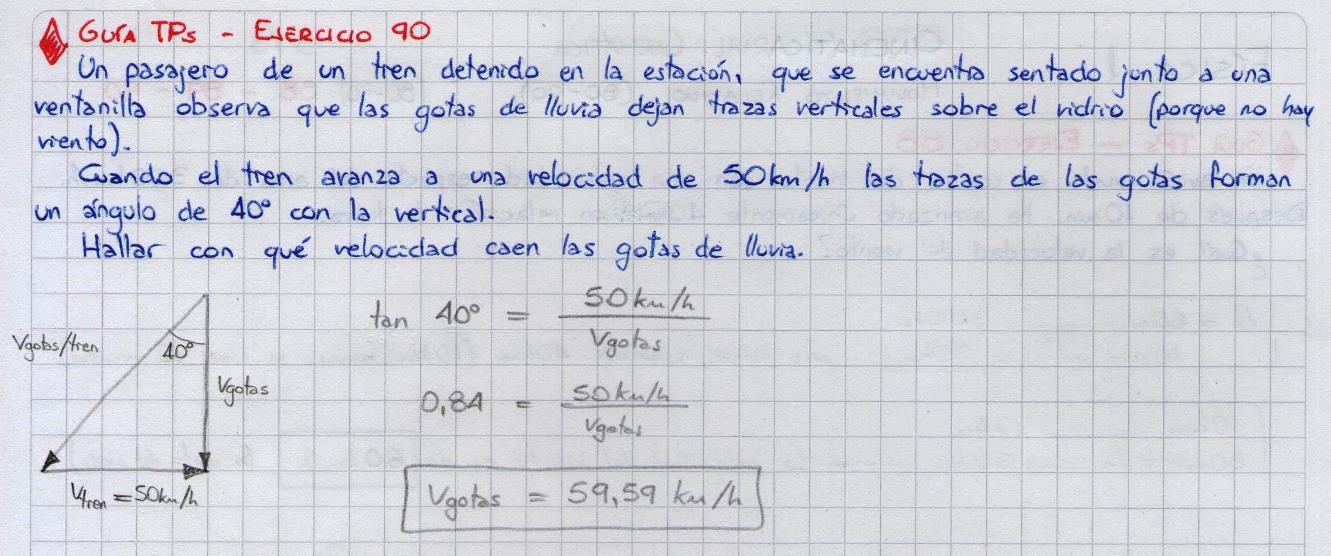 GUÍA TPs - EJERCICIO 90
Un pasajero de un tren detenido en la estación, que se encuentra sentado junto a una
ventanilla observa que las gotas de lluvia dejan trazas verticales sobre el vidrio (porque no hay
viento).
Cuando el tren avanza a una velocidad de 50km/h las trazas de las gotas forman
un ángulo de 40° con la vertical.
Hallar con qué velocidad caen las gotas de lluvia.
tan 40° = 50km/h / Vgotas
Vgotas/tren
40°
Vgotas
0,84 = 50km/h / Vgotas
Vtren = 50km/h
Vgotas = 59,59 km/h